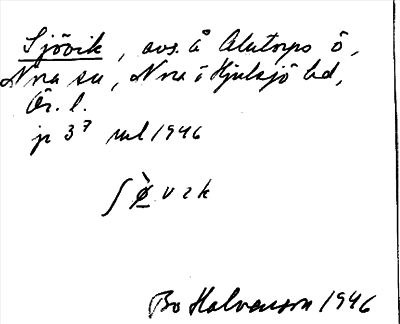 Sjövik, avs. å Alutorps ö,
Nra su, Nra i Hjulsjö sd,
Ör. l.
p 3⁷ rul 1946
ʃø̀vɪk
Bo Halvenson 1946